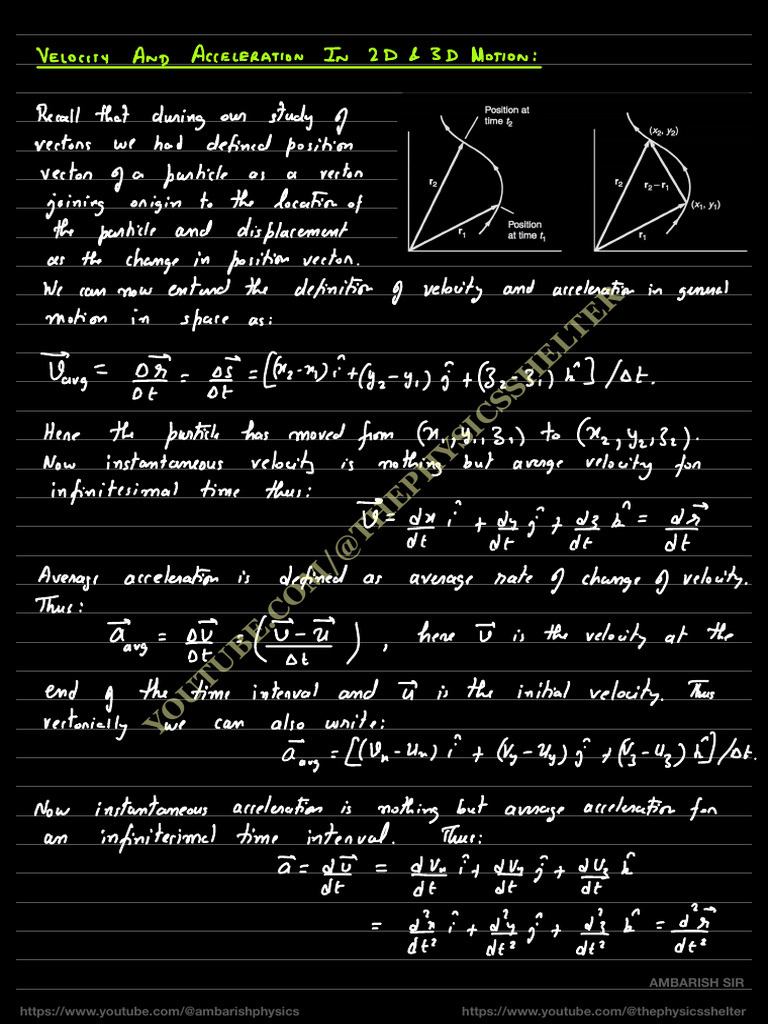 VELOCITY AND ACCELERATION IN 2D & 3D MOTION:
Recall that during our study of
vectors we had defined position
vector of a particle as a vector
joining origin to the location of
the particle and displacement
as the change in position vector.
Position at
time t₂
r₂
r₁
Position
at time t₁
(x₂, y₂)
r₂
r₂−r₁
(x₁, y₁)
r₁
We can now extend the definition of velocity and acceleration in general
motion in space as:
v⃗avg = Δr⃗/Δt = Δs⃗/Δt = [(x₂-x₁) î + (y₂-y₁) ĵ + (z₂-z₁) k̂] / Δt.
Here the particle has moved from (x₁, y₁, z₁) to (x₂, y₂, z₂).
Now instantaneous velocity is nothing but average velocity for
infinitesimal time thus:
v⃗ = dx/dt î + dy/dt ĵ + dz/dt k̂ = dr⃗/dt
Average acceleration is defined as average rate of change of velocity.
Thus:
a⃗avg = Δv⃗/Δt = ((v⃗ - u⃗)/Δt) , here v⃗ is the velocity at the
end of the time interval and u⃗ is the initial velocity. Thus
vectorially we can also write:
a⃗avg = [(vx - ux) î + (vy - uy) ĵ + (vz - uz) k̂] / Δt.
Now instantaneous acceleration is nothing but average acceleration for
an infinitesimal time interval. Thus:
a⃗ = dv⃗/dt = dvx/dt î + dvy/dt ĵ + dvz/dt k̂
= d²x/dt² î + d²y/dt² ĵ + d²z/dt² k̂ = d²r⃗/dt²
YOUTUBE.COM/@THEPHYSICSSHELTER
AMBARISH SIR
https://www.youtube.com/@ambarishphysics
https://www.youtube.com/@thephysicsshelter